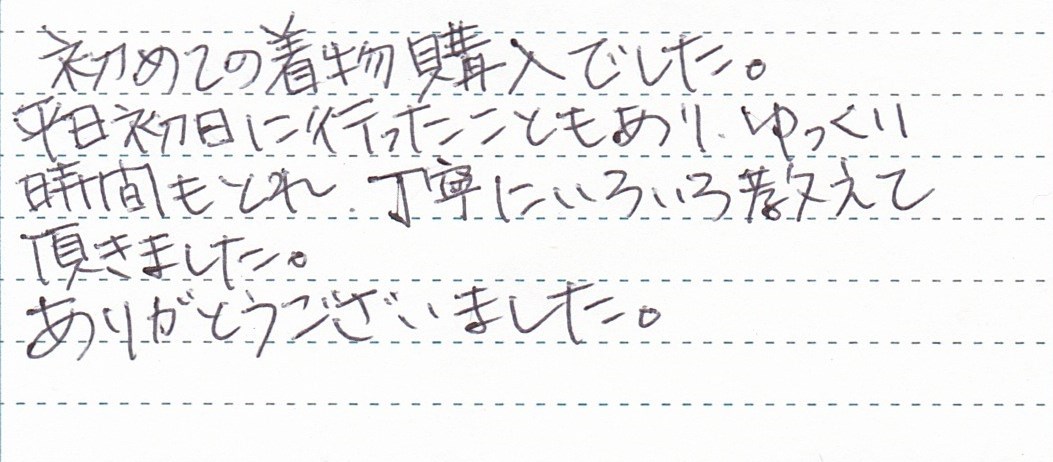 初めての着物購入でした。
平日初日に行ったこともあり、ゆっくり
時間もとれ、丁寧にいろいろ教えて
頂きました。
ありがとうございました。